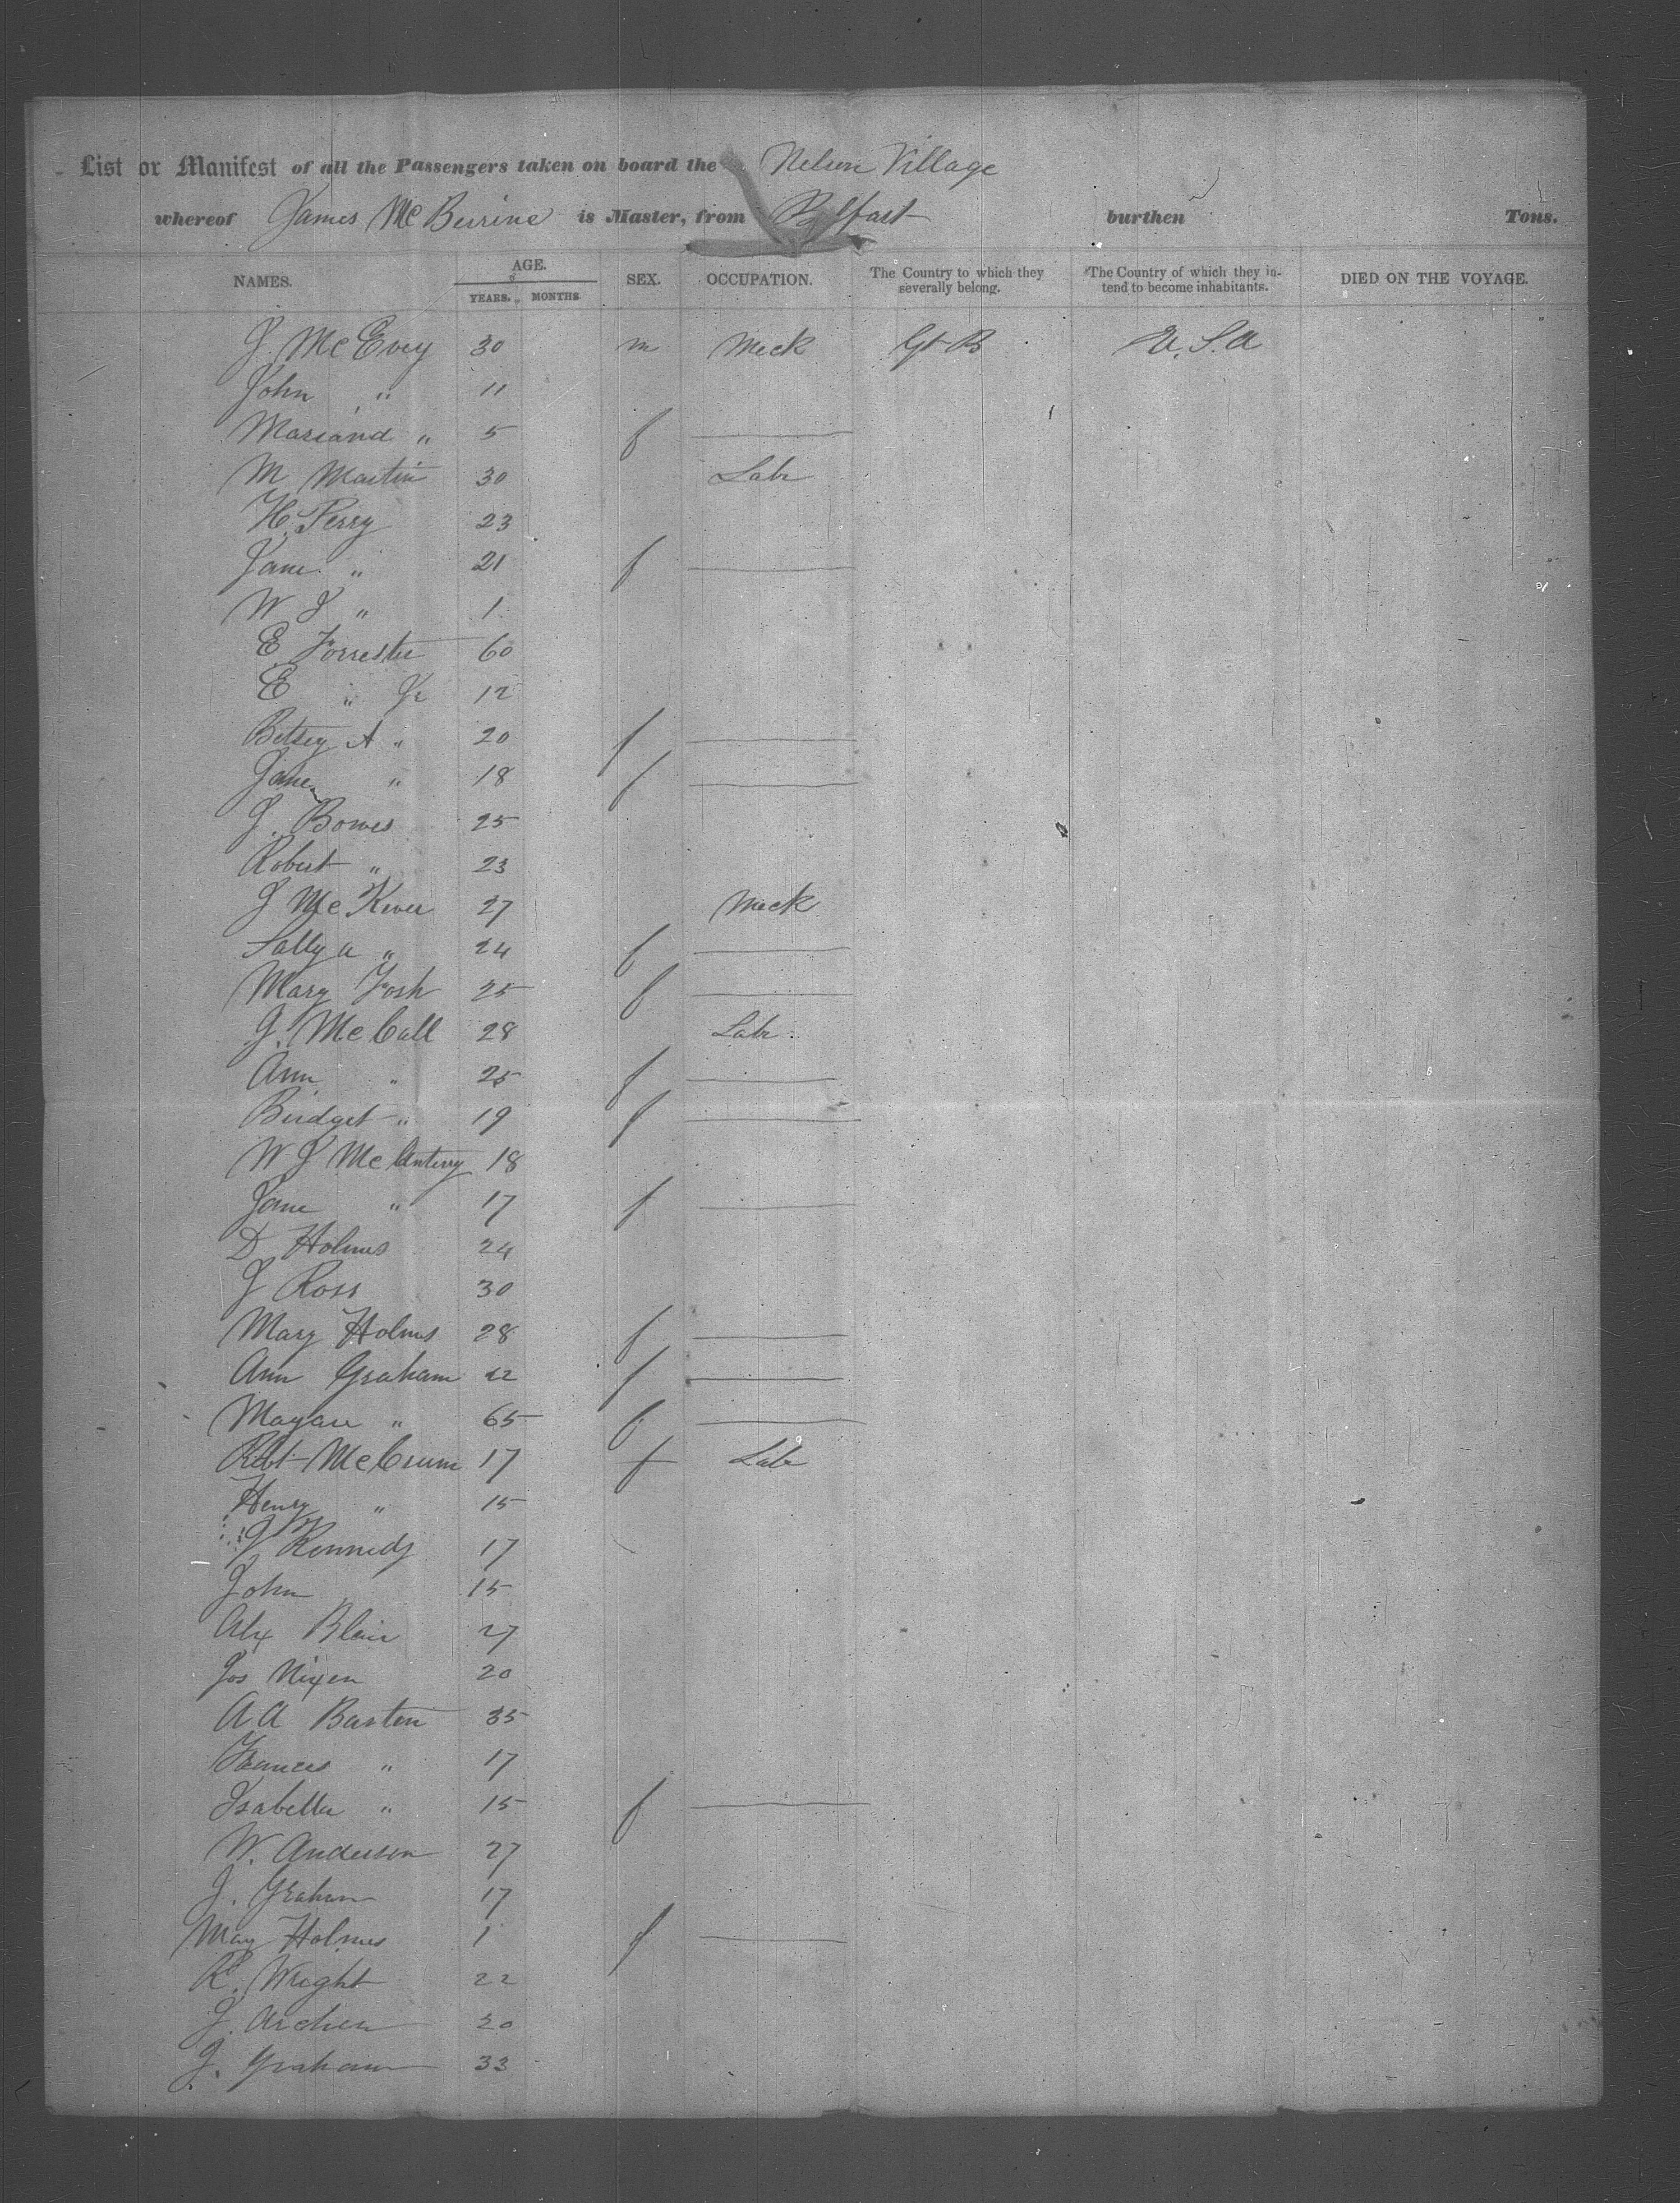 List or Manifest of all the Passengers taken on board the Nelson Village
whereof James McBurine is Master, from Belfast burthen Tons.
NAMES. AGE. YEARS. MONTHS SEX. OCCUPATION. The Country to which they severally belong. The Country of which they intend to become inhabitants. DIED ON THE VOYAGE.
J McEvoy 30 m Meck Gt B U.S.A
John " 11
" 5 f
M Martin 30 Labr
H. Perry 23
Jane " 21 f
W J " 1
E Forrester 60
E " Jr 12
Betsey A " 20 f
Jane " 18 f
J. Bowes 25
Robert " 23
J McKever 27 Meck
Sally a " 24 f
Mary Fosh 25 f
J. McCall 28 Labr
Ann " 25 f
Bridget " 19 f
W J 18
Jane " 17 f
D Holmes 24
J Ross 30
Mary Holms 28 f
Ann Graham 22 f
" 65 f
Robt McCrum 17 f Labr
Henry " 15
J Kennedy 17
John 15
Alex Blair 27
Jos Nixen 20
A A Barton 35
Frances " 17
Isabella " 15 f
W. Anderson 27
J. Graham 17
May Holmes 1 f
R. Wright 22
J. Archer 20
J. Graham 33